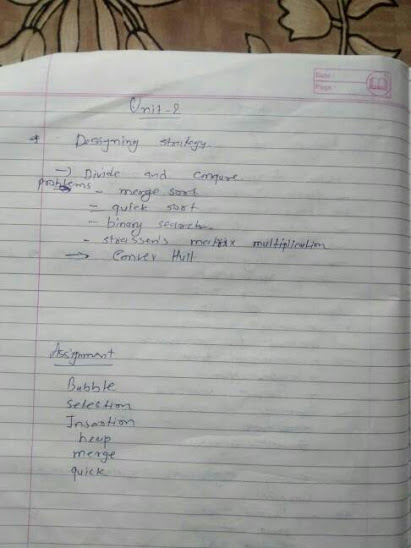 Date :
Page :
Unit-2
* - Designing strategy.
→ Divide and conqure.
problems
- merge sort
- quick sort
- binary search.
- strassen's matrix multiplication
→ Convex Hull
Assignment
Bubble
Selection
Insertion
heap
merge
quick